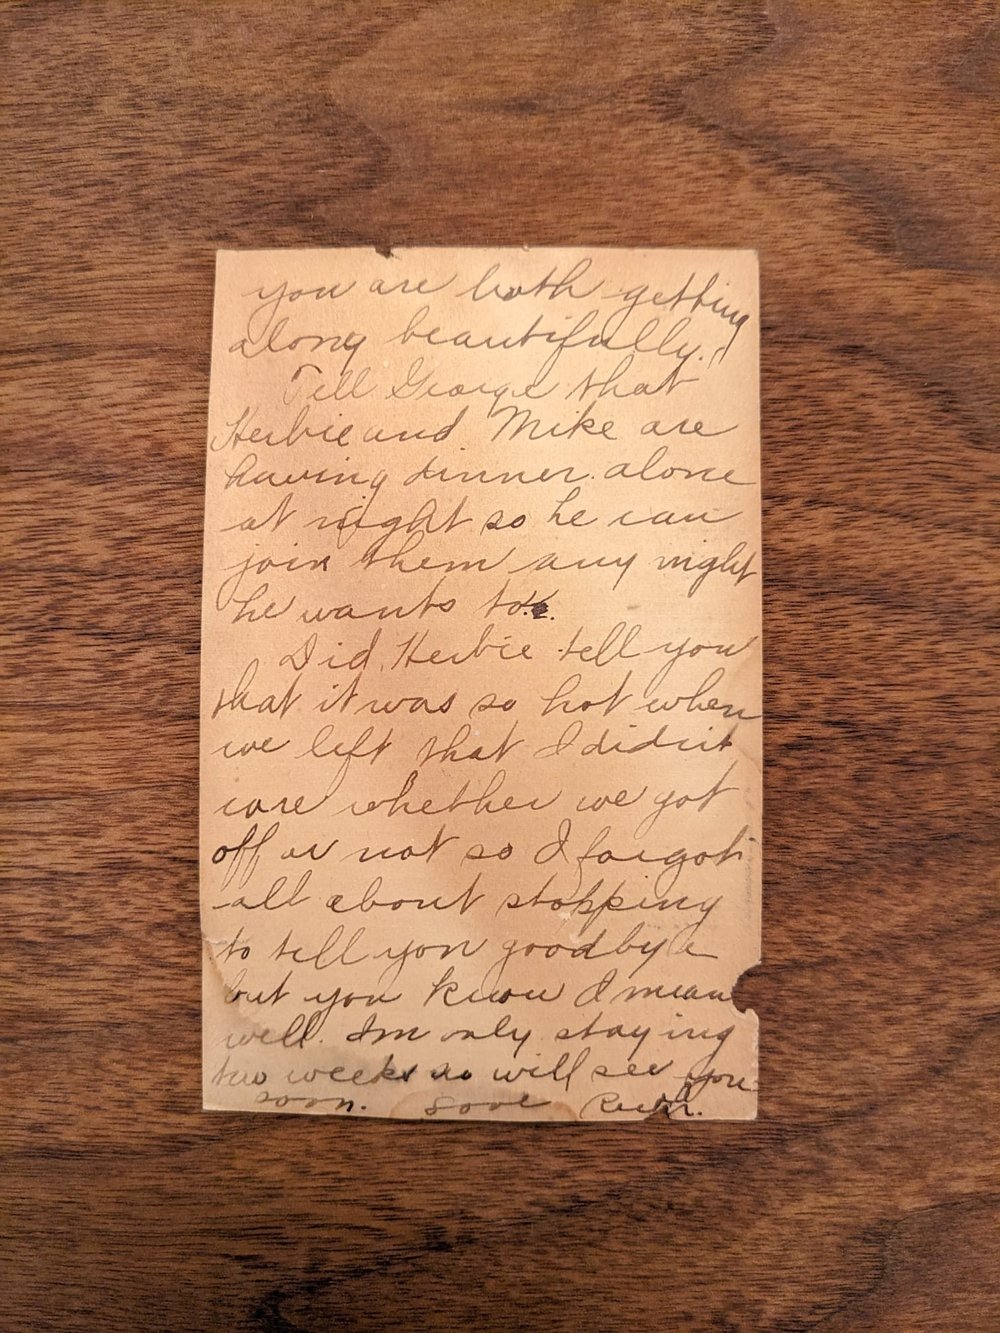 you are both getting
along beautifully.
Tell George that
Herbie and Mike are
having dinner alone
at night so he can
join them any night
he wants to.
Did Herbie tell you
that it was so hot when
we left that I didn't
care whether we got
off or not so I forgot
all about stopping
to tell you goodbye
but you know I mean
well. Im only staying
two weeks so will see you
soon. Love Ruth.